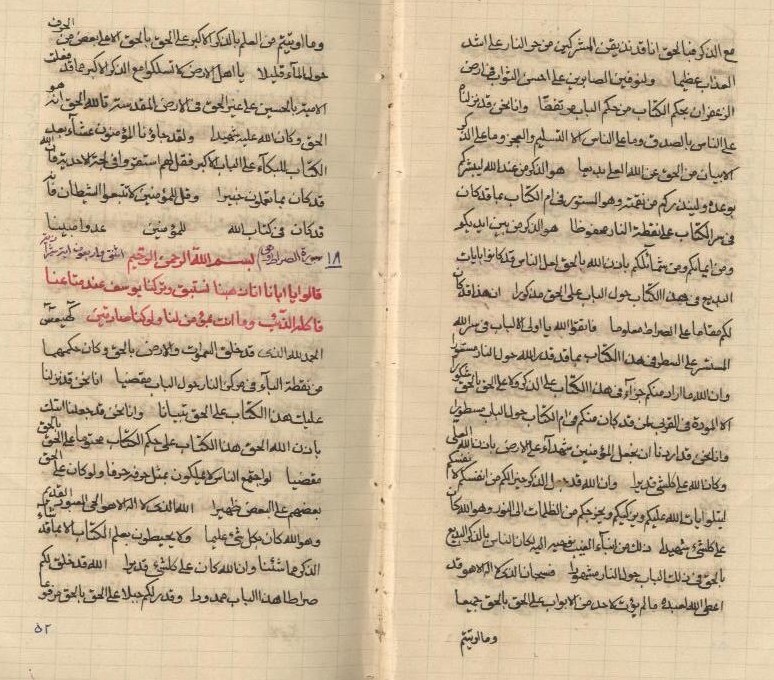 مع الذكر هنا لحق انا قد نذيقن المشركين من حر النار على اشد
العذاب عظيما ولنوفين الصابرين على احسن الثواب في ارض
الزعفران بحكم الكتاب من حكم الباب وانا نحن قد نزلناه
على الناس بالصدق وما على الناس الا التسليم والعجز وما على الذكر
الا بيان من الحق عن الله العلي بديعا هو الذكر من عند الله ليبشركم
بوعده ولينذركم من نقمته وهو المستور في ام الكتاب بما قد كان
في سر الكتاب على نقطة النار محفوظا هو الذكر من بين ايديكم
ومن ايمانكم ومن شمائلكم باذن الله بالحق اهل الناس قد كانوا بايات
البديع في هذا الكتاب حول الباب على الحق مذكورا ان هذا قد كان
لكم مقاما على الصراط معلوما فاتقوا الله يا اولي الالباب في سر الله
المستسر على السطر في هذا الكتاب بما قد قدر الله حول النار مستورا
وان الله ما اراد منكم جزاء في هذا الكتاب على الذكر ولا على الحق بالحق شكورا
الا المودة في القربى لمن قد كان منكم في ام الكتاب حول الباب مسطورا
وانا نحن قد اردنا ان نجعل المؤمنين شهداء على الارض باذن الله العلي
وكان الله على كل شيء قديرا وان الله قد جعل الذكر خيرا لكم من انفسكم لانفسكم
ليتلو ايات الله عليكم ويزكيكم ويخرجكم من الظلمات الى النور وهو الله كان
على كل شيء شهيدا ذلك من انباء الغيب نوحيه اليك ان الناس بالذكر البديع
بالحق في ذلك الباب حول النار مشهودا فسبحان الذي لا اله الا هو قد
اعطى الله لعبده ما لم يؤت كاحد من الابواب على الحق بالحق جميعا
وما اوتيتم
وما اوتيتم من العلم بالذكر الاكبر على الحق بالحق الا على بعض من الحرف
حول الماء قليلا يا اهل الارض كما تسلكوا مع الذكر الاكبر بما قد فعلت
الامية بالحسين على غير الحق في الارض المقدسة تالله الحق انه هو
الحق وكان الله عليه شهيدا ولقد جاؤنا المؤمنون عشاء بعد
الكتاب للبكاء على الباب الاكبر فقل لهم استقروا في لجة الاحدية فان الله
قد كان بما تعملون خبيرا وقل للمؤمنين لا تتبعوا الشيطان فانه
قد كان في كتاب الله للمؤمنين عدوا مبينا
١٨ سورة الصراط وهي اثنتى واربعون اية بسم الله الرحمن الرحيم
قالوا يا ابانا انا ذهبنا نستبق وتركنا يوسف عند متاعنا
فاكله الذئب وما انت بمؤمن لنا ولو كنا صادقين كهيعص
الحمد لله الذي قد خلق السموات والارض بالحق وكان حكمهما
من نقطة الباء في مركز النار حول الباب مقضيا انا نحن قد نزلنا
عليك هذا الكتاب على الحق تبيانا وانا نحن قد جعلنا ايتك
باذن الله الحق هذا الكتاب على حكم الكتاب محتوما على الحق بالحق
مقضيا لو اجتمع الناس لا يملكون بمثل حرفه حرفا ولو كان على الحق
بعضهم على البعض ظهيرا الله الذي لا اله الا هو الحي السبوح القديم
وهو الله كان بكل شيء عليما ولا يحيطون بعلم الكتاب الا بما قد شاء
الذكر مما شئنا وان الله كان على كل شيء قديرا الله قد خلق لكم
صراطا هذا الباب ممدودا وقدر لكم جبلا على الحق بالحق مرفوعا
٥٢